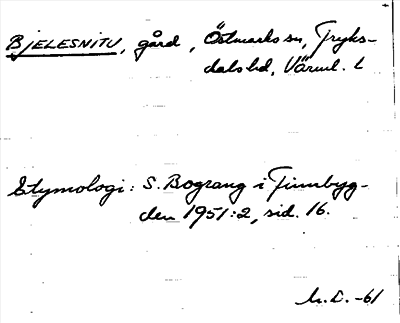 BJELESNITU, gård, Östmarks sn, Fryks-
dals hd, Värml. l
Etymologi: S. Bograng i Finnbyg-
den 1951:2, sid. 16.
-61